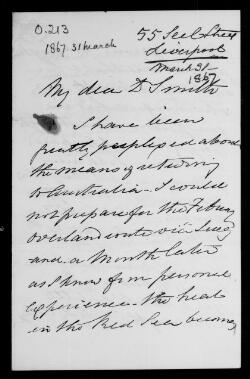 0.213
1867. 31 march
55 Seel Street
Liverpool
March 31-
1867
My dear Dr Smith
I have been
greatly perplexed about
the means of returning
to Australia - I could
not prepare for the February
overland route viâ Suez
and a Month later
as I know from personal
experience - the heat
in the Red Sea becomes